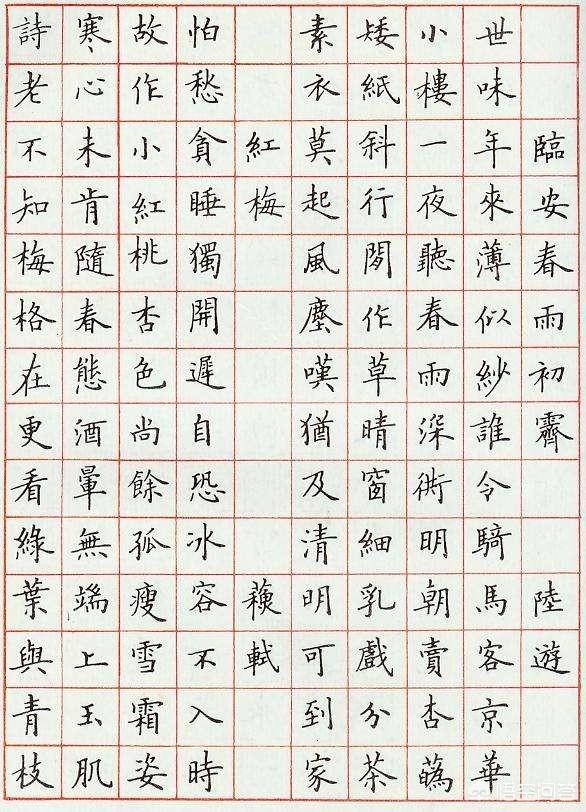 臨安春雨初霽 陸遊
世味年來薄似紗誰令騎馬客京華
小樓一夜聽春雨深衖明朝賣杏蘤
矮紙斜行閒作草晴窗細乳戲分茶
素衣莫起風塵嘆猶及清明可到家
紅梅 蘓軾
怕愁貪睡獨開遲自恐冰容不入時
故作小紅桃杏色尚餘孤瘦雪霜姿
寒心未肯隨春態酒暈無端上玉肌
詩老不知梅格在更看綠葉與青枝
悟空问答